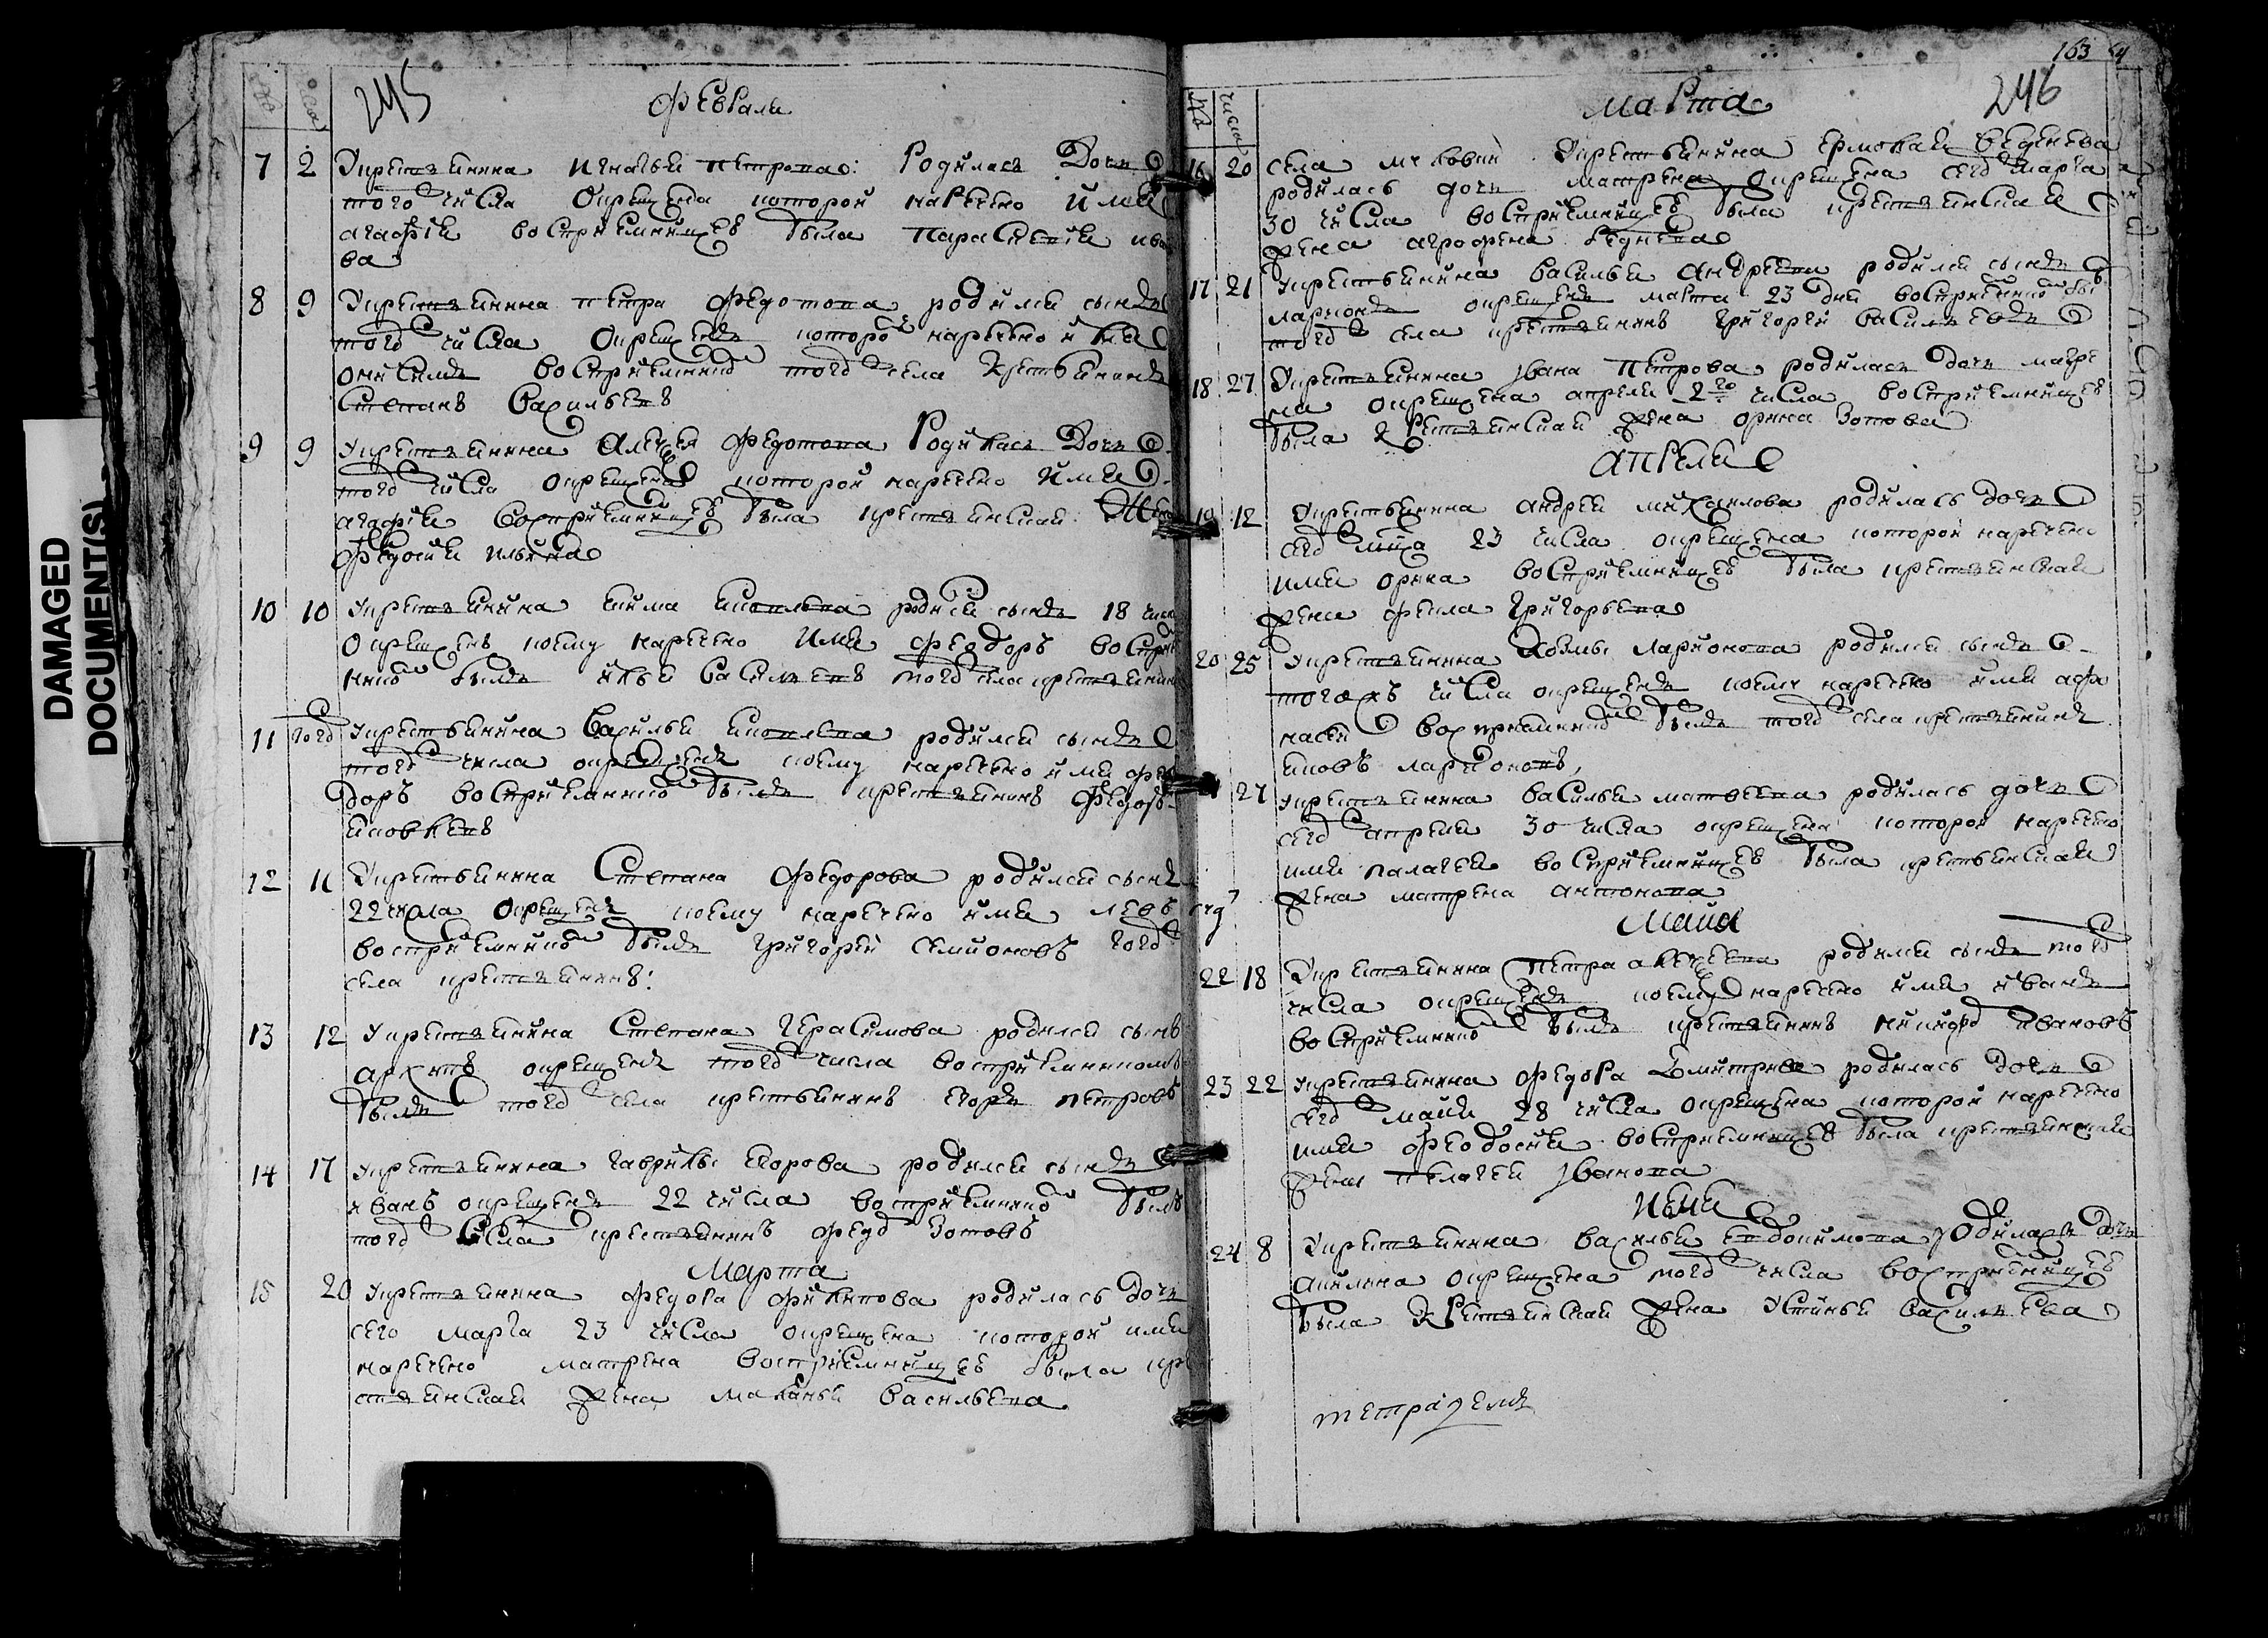 DAMAGED
DOCUMENT(S)
245
февраля
7 2 У крестьянина Игнатья Петрова: родилась дочь
того числа окрещена которой наречено имя
агафія восприемницею была параскевія ива
ва
8 9 У крестьянина петра федотова родился сынъ
того числа окрещенъ которо наречено имя
онисимъ восприемнико того села крестьянинъ
Степанъ Васильевъ
9 9 У крестьянина Алексея федотова родилась дочь
того числа окрещена которой наречено имя
агафія восприемницею была крестьянская жена
федосия ильина
10 10 У крестьянина родился сынъ 18 числа
окрещенъ коему наречено имя феодоръ воспри
мнико былъ илья васильевъ того села крестьянинъ
11 того У крестьянина Василья родился сынъ
того числа окрещенъ коему наречено имя фео
доръ восприемнико былъ крестьянинъ федоръ
яковлевъ
12 11 У крестьянина Степана федорова родился сынъ
22 числа окрещенъ коему наречено имя левъ
восприемнико былъ григорей семионовъ того
села крестьянинъ:
13 12 У крестьянина Степана герасимова родился сынъ
архипъ окрещенъ того числа восприемникомъ
былъ того села крестьянинъ егоръ петровъ
14 17 У крестьянина гаврилы егорова родился сынъ
иванъ окрещенъ 22 числа восприемнико былъ
того села крестьянинъ федо зотовъ
Марта
15 20 У крестьянина федора филипова родилась дочь
сего марта 23 числа окрещена которой имя
наречено матрена восприемницею была кре
стьянская жена маланья васильева
163
246
марта
16 20 села У крестьянина ермолая веденева
родилась дочь матрена окрещена сего марта
30 числа восприемницею была крестьянская
жена агрофена
17 21 У крестьянина василья андреева родился сынъ
ларионъ окрещенъ марта 23 дня восприемнико бы
того села крестьянинъ григорей васильевъ
18 27 У крестьянина ивана петрова родилась дочь матре
на окрещена апреля 2го числа восприемницею
была крестьянская жена орина зотова
апреля
19 12 У крестьянина андрея михаилова родилась дочь
сего мца 23 числа окрещена которой наречено
имя орина восприемницею была крестьянская
жена фекла григорьева
20 25 У крестьянина козмы ларионова родился сынъ
тогожъ числа окрещенъ коему наречено имя афа
насей восприемнико былъ того села крестьянинъ
яковъ ларионовъ,
27 У крестьянина василья матвеева родилась дочь
сего апреля 30 числа окрещена которой наречено
имя палагея восприемницею была крестьянская
жена матрена антонова
Майя
22 18 У крестьянина петра алексеева родился сынъ того
числа окрещенъ коему наречено имя иванъ
восприемнико былъ крестьянинъ никифо ивановъ
23 22 У крестьянина федора дмитриева родилась дочь
сего майя 28 числа окрещена которой наречено
имя феодосия восприемницею была крестьянская
жена пелагея иванова
июня
24 8 У крестьянина василья евдокимова родилась дочь
акилина окрещена того числа восприемницею
была крестьянская жена устинья васильева